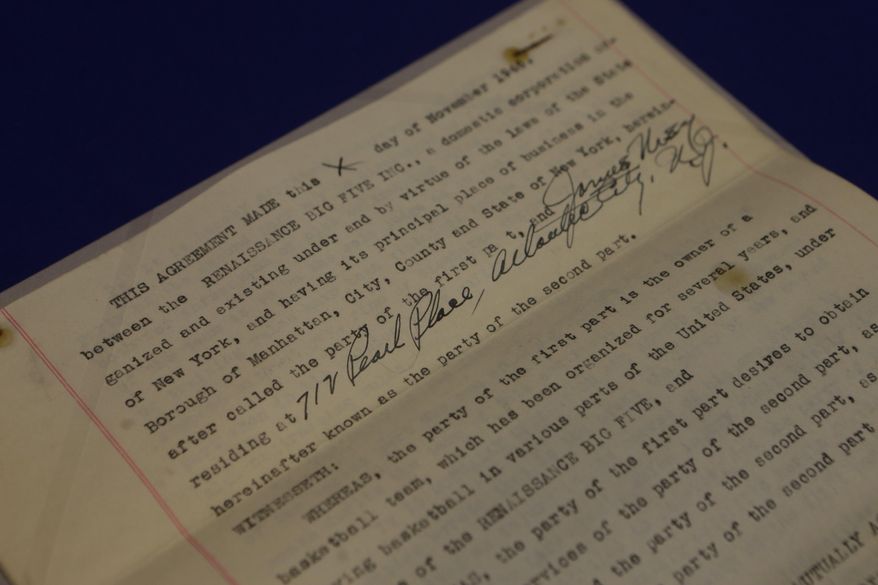 THIS AGREEMENT MADE this X day of November
between the RENAISSANCE BIG FIVE INC., a domestic corporation or-
ganized and existing under and by virtue of the laws of the State
of New York, and having its principal place of business in the
Borough of Manhattan, City, County and State of New York, herein-
after called the party of the first pa t, and James
residing at 712 Pearl Place, Atlantic City, N.J.
hereinafter known as the party of the second part.
WITNESSETH:
WHEREAS, the party of the first part is the owner of a
basketball team, which has been organized for several years, and
basketball in various parts of the United States, under
of the RENAISSANCE BIG FIVE, and
the party of the first part desires to obtain
of the party of the second part, as
the party of the second part, as
party of the second part